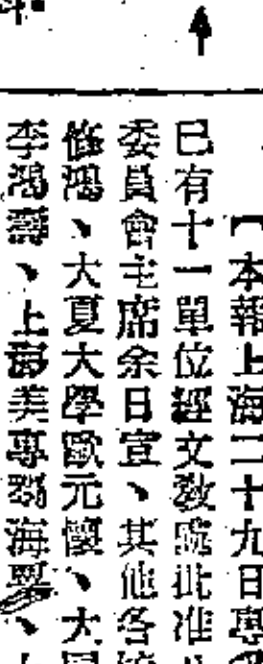 【本報上海二十九日專
已有十一單位經文教院批准
委員會主席余日宣、其他各
修鴻、大夏大學歐元懷、大
李鴻壽、上海美專劉海粟、